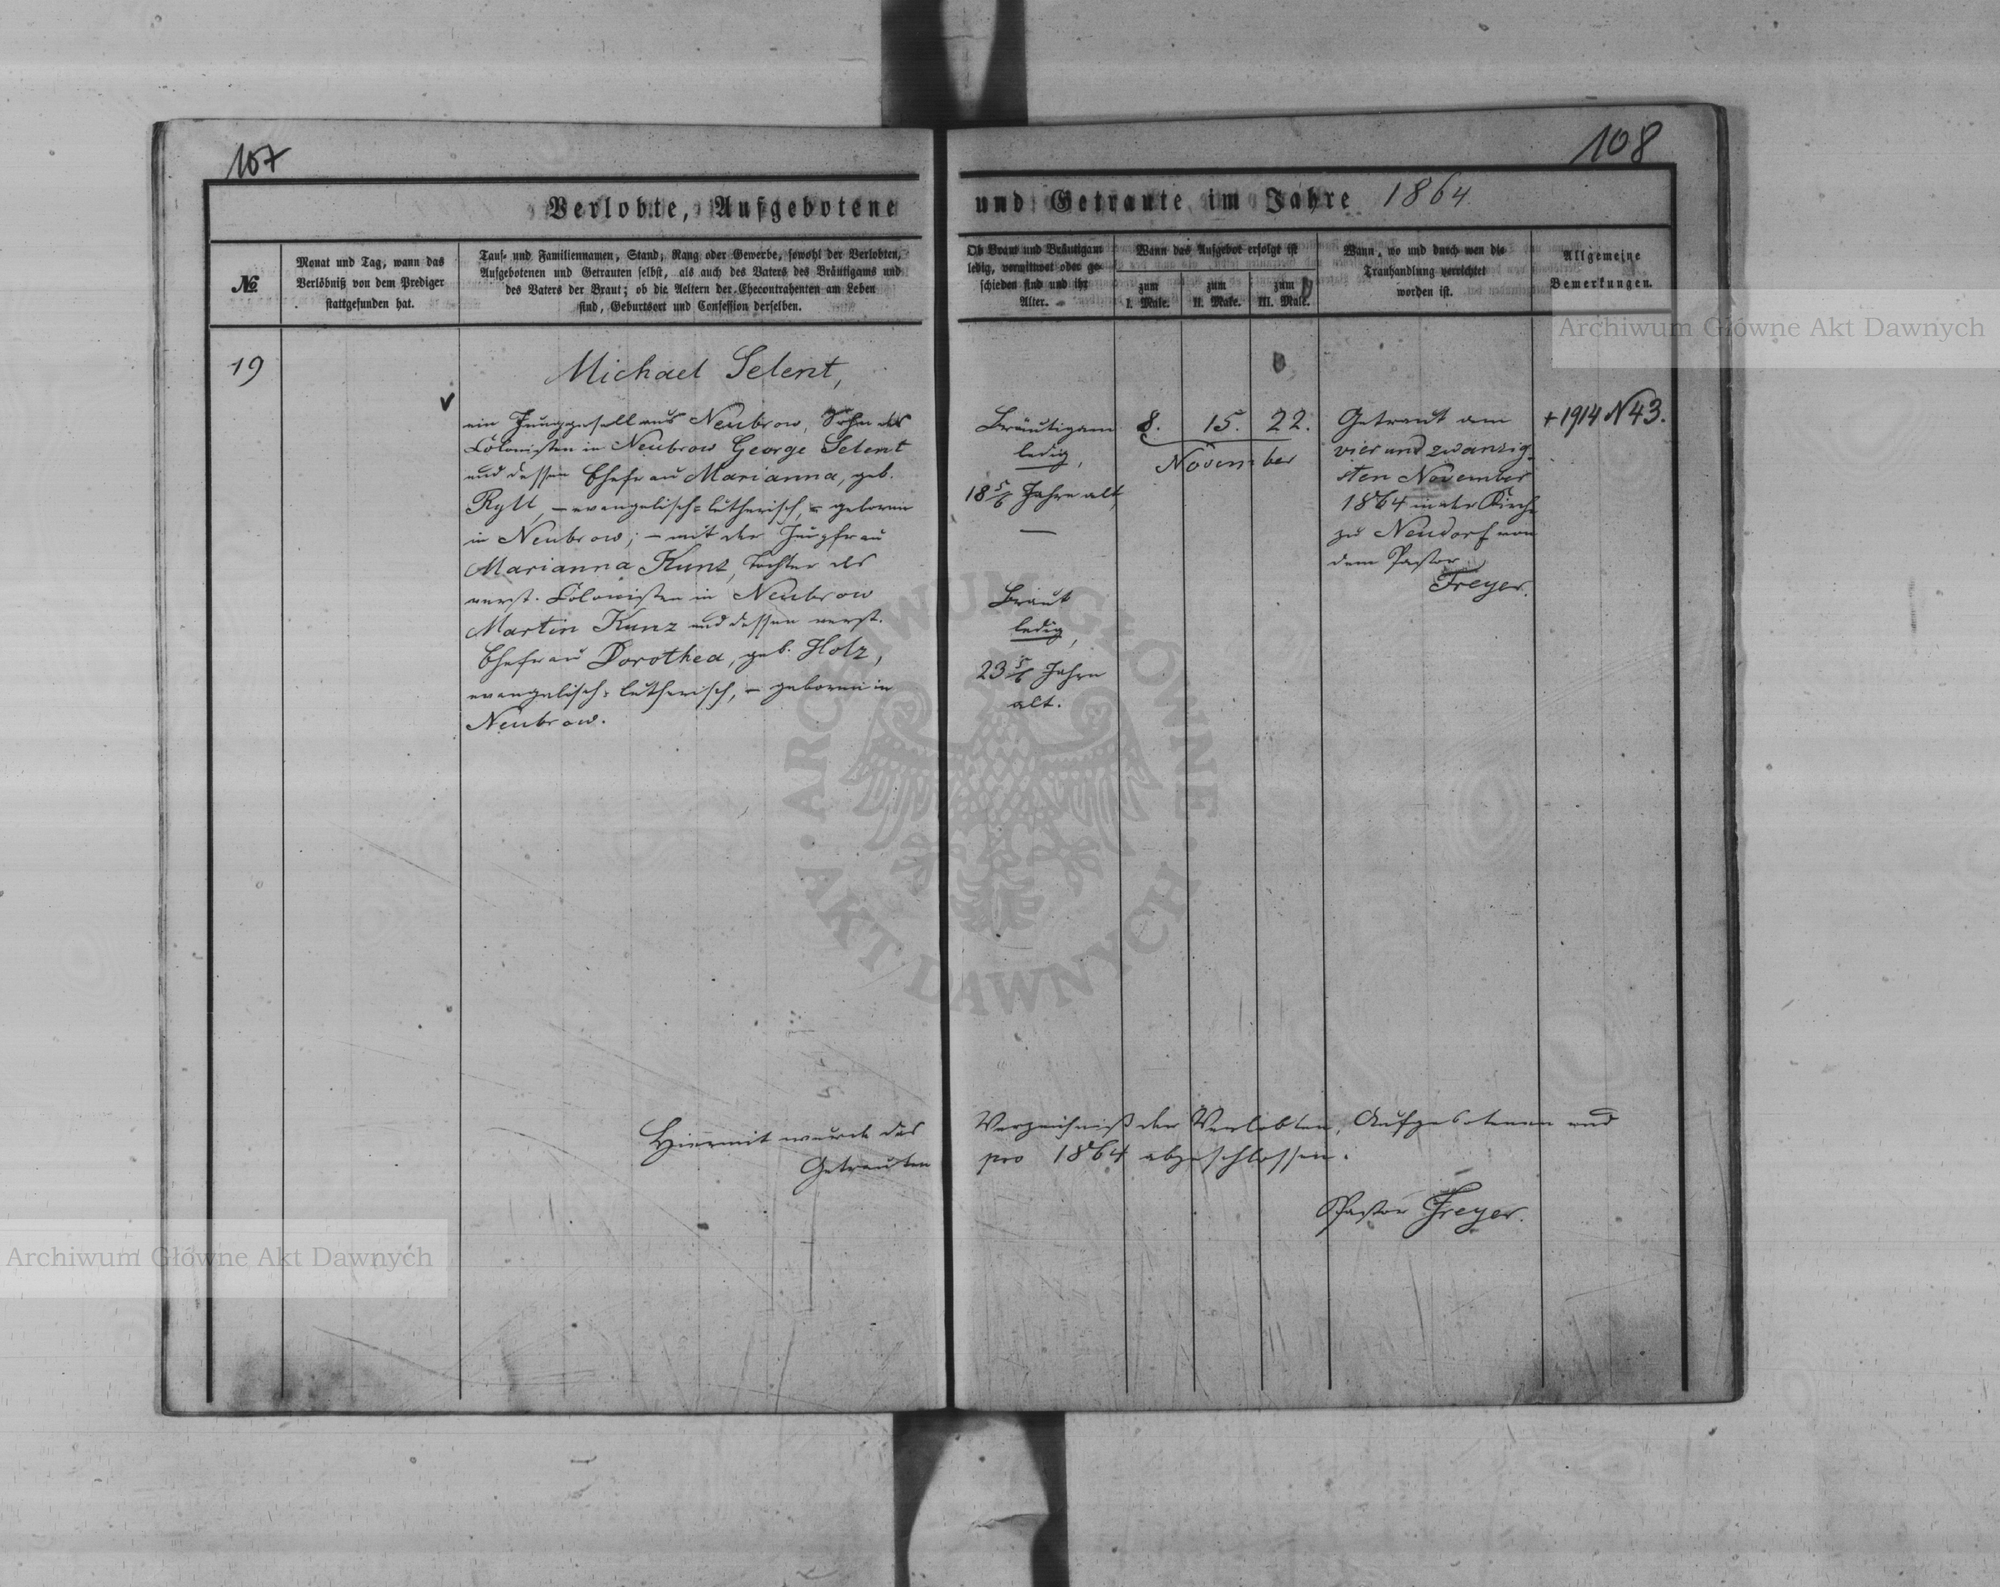 107
108
Verlobte, Aufgebotene und Getraute im Jahre 1864
№
Monat und Tag, wann das
Verlöbniß von dem Prediger
stattgefunden hat.
Tauf- und Familiennamen, Stand, Rang oder Gewerbe, sowohl der Verlobten,
Aufgebotenen und Getrauten selbst, als auch des Vaters des Bräutigams und
des Vaters der Braut; ob die Aeltern der Ehecontrahenten am Leben
sind, Geburtsort und Confession derselben.
Ob Braut und Bräutigam
ledig, verwittwet oder ge-
schieden sind und ihr
Alter.
Wann das Aufgebot erfolgt ist
zum
I. Male.
zum
II. Male.
zum
III. Male.
Wann, wo und durch wen die
Trauhandlung verrichtet
worden ist.
Allgemeine
Bemerkungen.
19
Michael Selent,
ein Junggesell aus Neubrow, Sohn des
Colonisten in Neubrow George Selent
und dessen Ehefrau Marianna, geb.
Ryll, – evangelisch-lutherisch, – geboren
in Neubrow; – mit der Jungfrau
Marianna Kunz, Tochter des
verst. Colonisten in Neubrow
Martin Kunz und dessen verst.
Ehefrau Dorothea, geb. Holz,
evangelisch-lutherisch, – geboren in
Neubrow.
Bräutigam
ledig,
18 5/6 Jahre alt
—
Braut
ledig,
23 5/6 Jahre
alt.
8. 15. 22.
November
Getraut am
vier und zwanzig-
sten November
1864 in der Kirche
zu Neudorf von
dem Pastor
Freyer.
+ 1914 N 43.
Hiermit wurde das Verzeichniß der Verlobten, Aufgebotenen und
Getrauten pro 1864 abgeschlossen.
Pastor Freyer.
Archiwum Główne Akt Dawnych
Archiwum Główne Akt Dawnych
ARCHIWUM GŁÓWNE
AKT DAWNYCH